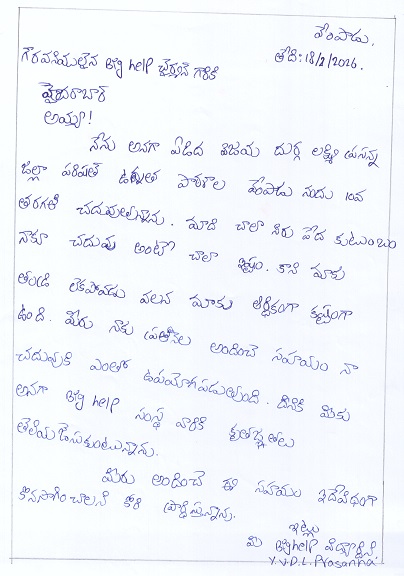 వేంపాడు,
తేది: 18/2/2026.
గౌరవనీయులైన Big help చైర్మన్ గారికి
హైదరాబాద్
అయ్యా!
నేను అనగా ఏడిద విజయ దుర్గ లక్ష్మి ప్రసన్న
జిల్లా పరిషత్ ఉన్నత పాఠశాల వేంపాడు నందు 10వ
తరగతి చదువుతున్నాను. మాది చాలా నిరు పేద కుటుంబం
నాకూ చదువు అంటే చాలా ఇష్టం. కాని మాకు
తండ్రి లేకపోవడం వలన మాకు ఆర్థికంగా కష్టంగా
ఉంది. మీరు నాకు ప్రతినెల అందించే సహాయం నా
చదువుకి ఎంతో ఉపయోగపడుతుంది. దీనికి మీకు
అనగా Big help సంస్థ వారికి కృతజ్ఞతలు
తెలియజేసుకుంటున్నాను.
మీరు అందించే ఈ సహాయం ఇదేవిధంగా
కొనసాగించాలని కోరి ప్రార్థిస్తున్నాను.
ఇట్లు
మీ Big help విద్యార్థిని.
Y.V.D.L. Prasanna